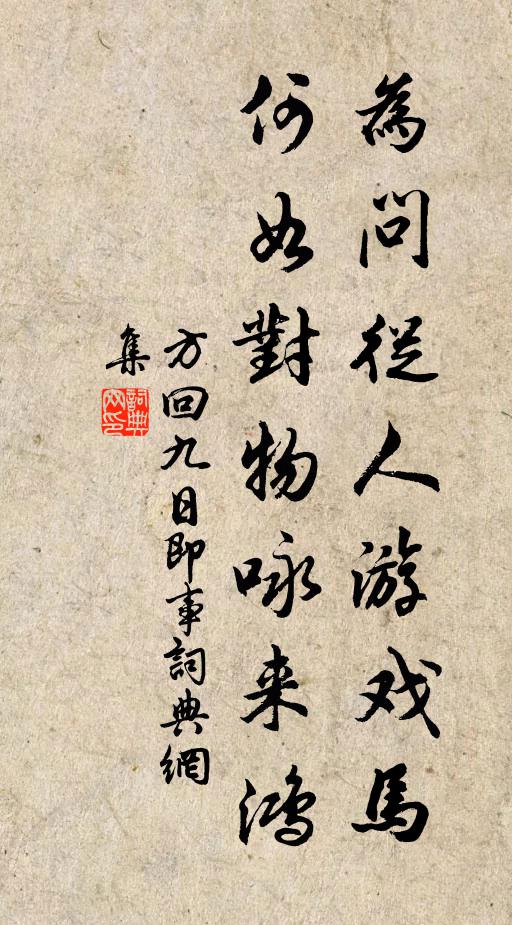 為問從人游戏馬
何如對物咏来鴻
方回九日即事詞典網
集
詞典
网印